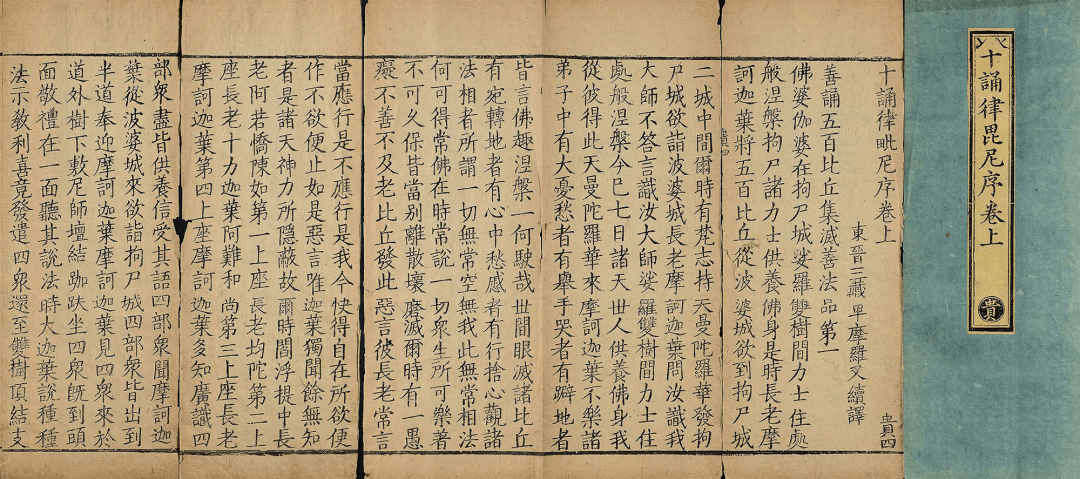 十誦律毘尼序卷上
貴
十誦律毗尼序卷上
貴四
東晉三藏卑摩羅叉續譯
善誦五百比丘集滅善法品第一
佛婆伽婆在拘尸城娑羅雙樹間力士住處
般涅槃拘尸諸力士供養佛身是時長老摩
訶迦葉將五百比丘從波婆城欲到拘尸城
二城中間爾時有梵志持天曼陀羅華發拘
尸城欲詣波婆城長老摩訶迦葉問汝識我
大師不答言識汝大師娑羅雙樹間力士住
處般涅槃今已七日諸天世人供養佛身我
從彼得此天曼陀羅華來摩訶迦葉不樂諸
弟子中有大憂愁者有舉手哭者有躃地者
皆言佛趣涅槃一何駛哉世間眼滅諸比丘
有宛轉地者有心中愁慼者有行捨心觀諸
法相者所謂一切無常空無我此無常相法
何可得常佛在時常說一切衆生所可樂著
不可久保皆當別離散壞磨滅爾時有一愚
癡不善不及老比丘發此惡言彼長老常言
當應行是不應行是我今快得自在所欲便
作不欲便止如是惡言唯迦葉獨聞餘無知
者是諸天神力所隱蔽故爾時閻浮提中長
老阿若憍陳如第一上座長老均陀第二上
座長老十力迦葉阿難和尚第三上座長老
摩訶迦葉第四上座摩訶迦葉多知廣識四
部衆盡皆供養信受其語四部衆聞摩訶迦
葉從波婆城來欲詣拘尸城四部衆皆出到
半道奉迎摩訶迦葉摩訶迦葉見四衆來於
道外樹下敷尼師壇結跏趺坐四衆既到頭
面敬禮在一面聽其說法時大迦葉說種種
法示教利喜竟發遣四衆還至雙樹頂結支